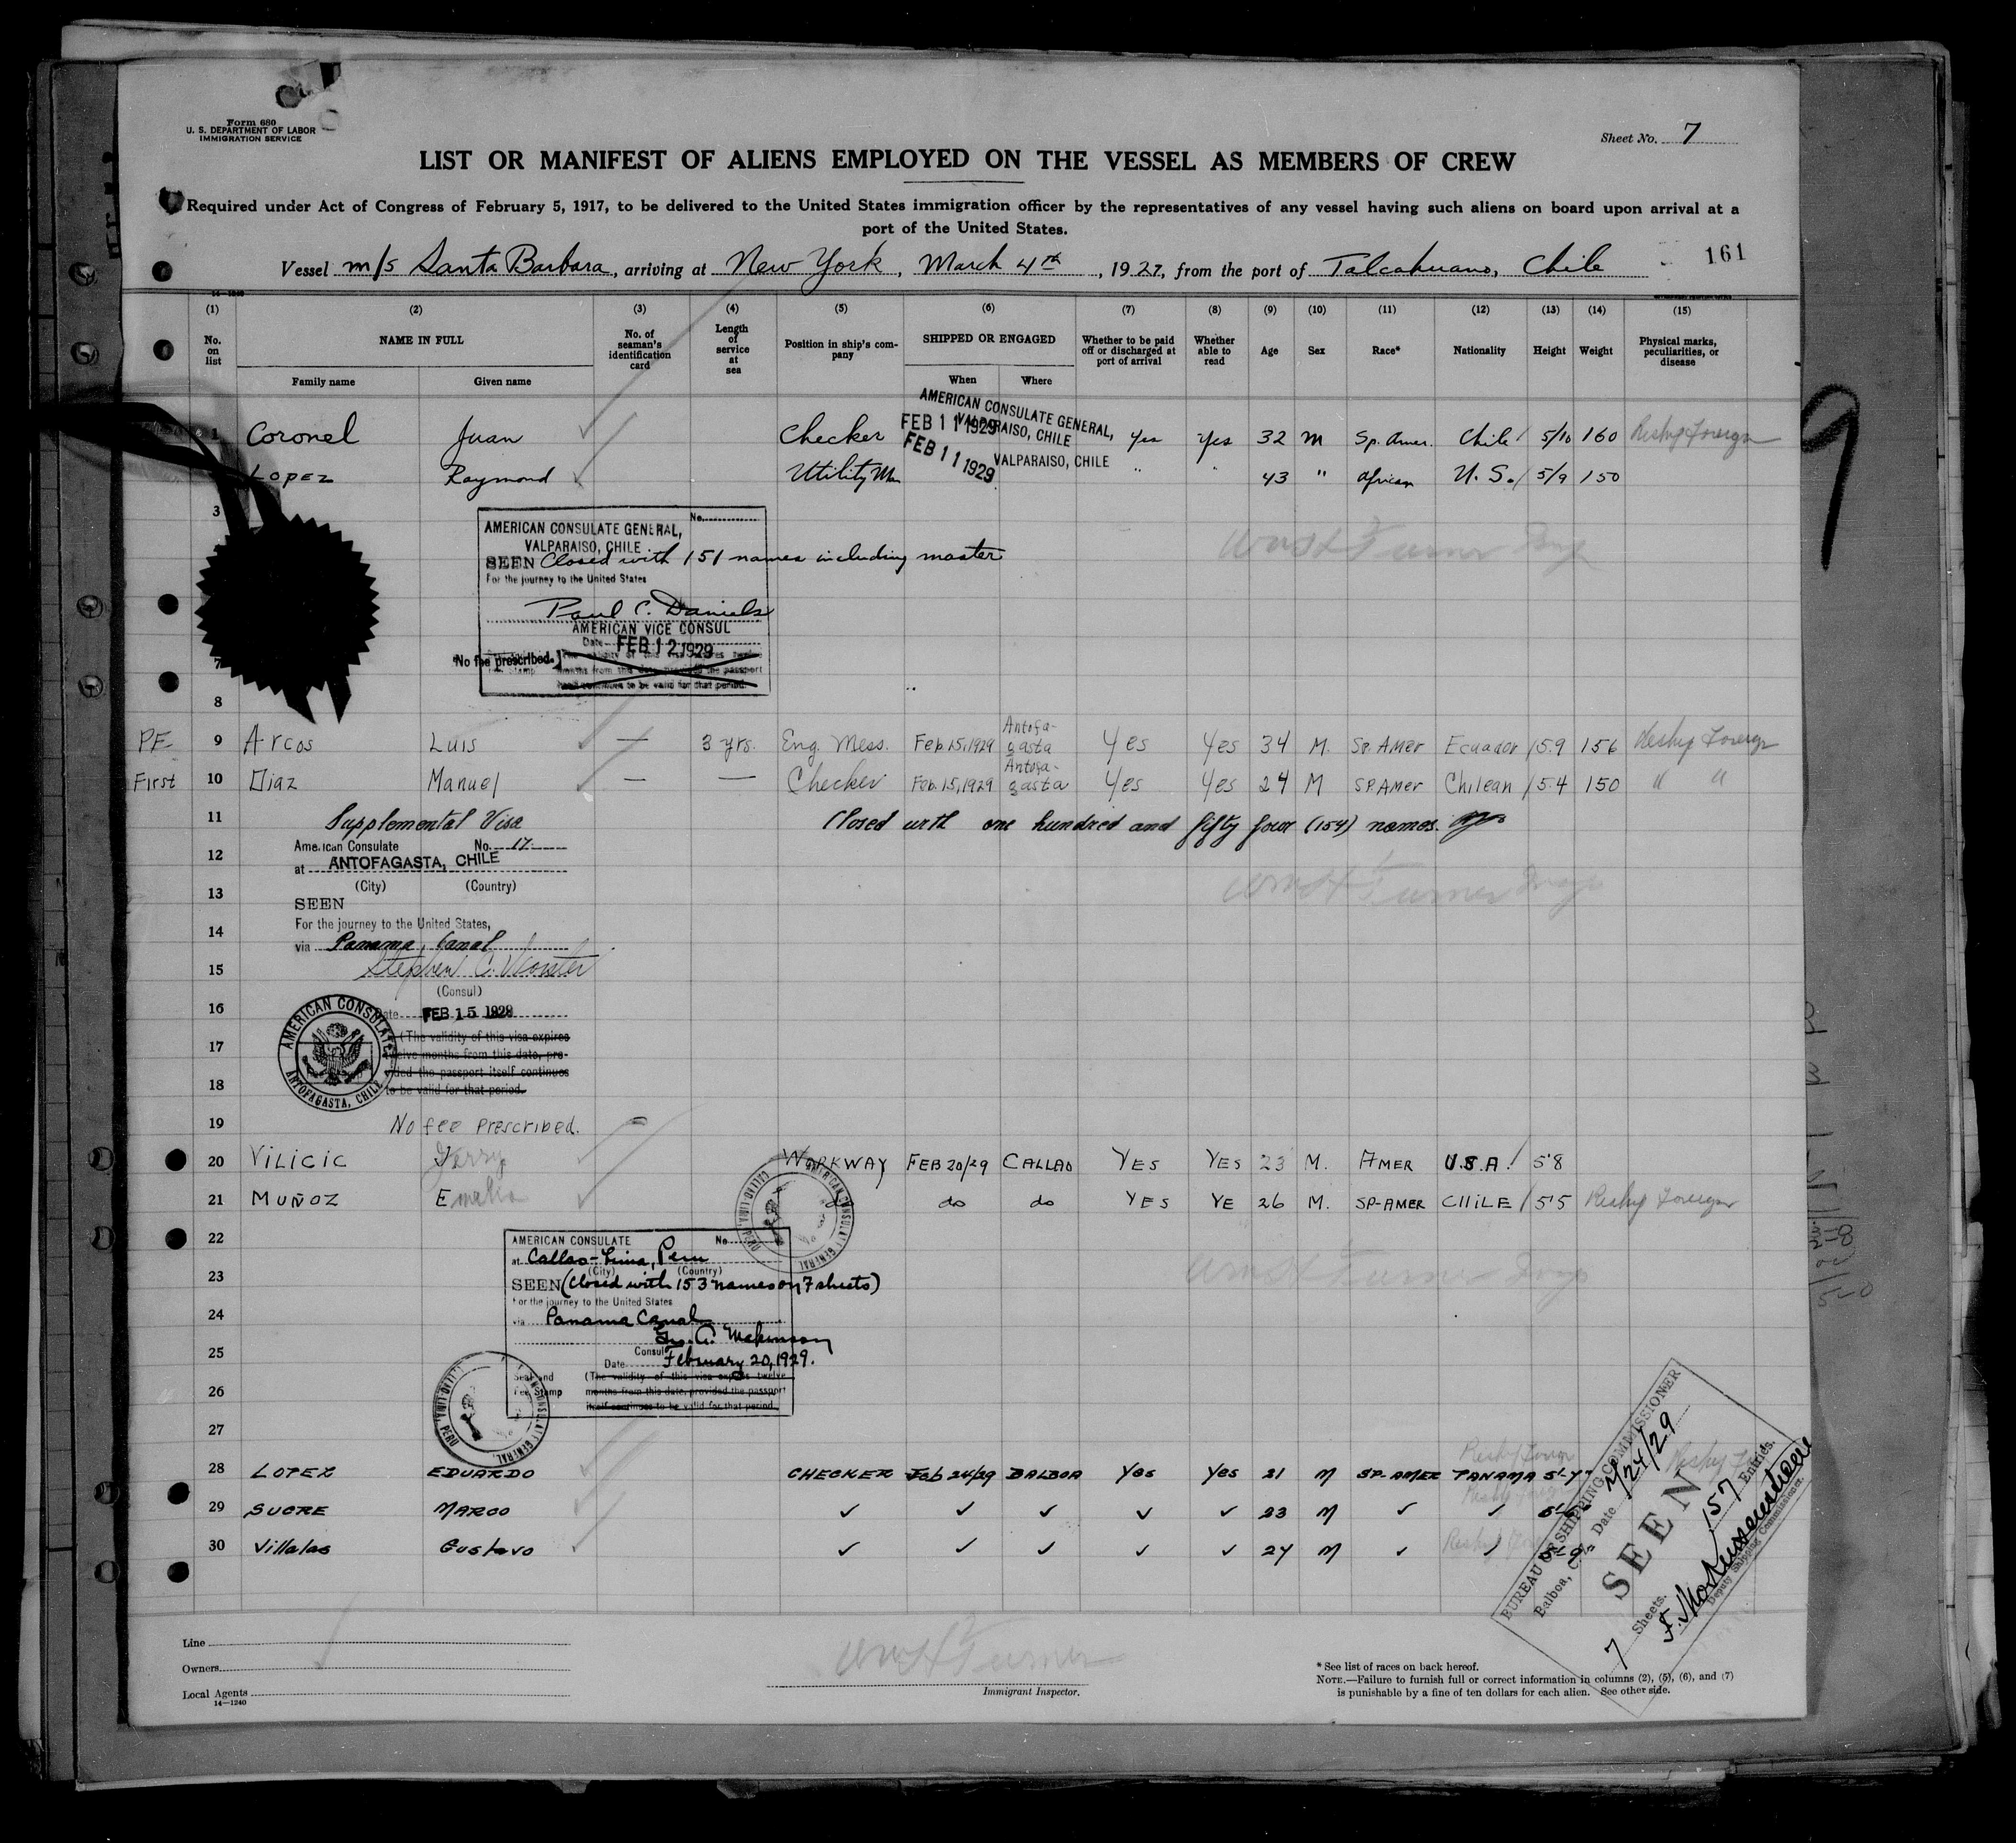 Form 680
U. S. DEPARTMENT OF LABOR
IMMIGRATION SERVICE
Sheet No. 7
LIST OR MANIFEST OF ALIENS EMPLOYED ON THE VESSEL AS MEMBERS OF CREW
Required under Act of Congress of February 5, 1917, to be delivered to the United States immigration officer by the representatives of any vessel having such aliens on board upon arrival at a
port of the United States.
Vessel m/s Santa Barbara, arriving at New York, March 4th, 1929, from the port of Talcahuano, Chile
161
(1) (2) (3) (4) (5) (6) (7) (8) (9) (10) (11) (12) (13) (14) (15)
No. on list NAME IN FULL No. of seaman's identification card Length of service at sea Position in ship's company SHIPPED OR ENGAGED Whether to be paid off or discharged at port of arrival Whether able to read Age Sex Race* Nationality Height Weight Physical marks, peculiarities, or disease
Family name Given name When Where
AMERICAN CONSULATE GENERAL,
VALPARAISO, CHILE
1 Coronel Juan Checker FEB 11 1929 Yes Yes 32 M Sp. Amer. Chile 5/10 160 Reship Foreign
FEB 11 1929 VALPARAISO, CHILE
Lopez Raymond Utility Man " " 43 " African U. S. 5/9 150
3
No.
AMERICAN CONSULATE GENERAL,
VALPARAISO, CHILE
SEEN Closed with 151 names including master
For the journey to the United States
Paul C. Daniels
AMERICAN VICE CONSUL
Date FEB 12 1929
No fee prescribed.
7
8
PE 9 Arcos Luis — 3 yrs. Eng. Mess. Feb 15, 1929 Antofagasta Yes Yes 34 M. Sp. Amer Ecuador 5.9 156 Reship Foreign
First 10 Diaz Manuel — — Checker Feb. 15, 1929 Antofagasta Yes Yes 24 M SP. Amer Chilean 5.4 150 " "
11 Supplemental Visa Closed with one hundred and fifty four (154) names.
American Consulate No. 17
12 at ANTOFAGASTA, CHILE
(City) (Country)
13 SEEN
For the journey to the United States,
14 via Panama Canal
15 Stephen C. Worster
(Consul)
16 Date FEB 15 1929
AMERICAN CONSULATE
ANTOFAGASTA, CHILE
17 (The validity of this visa expires
twelve months from this date, pro-
vided the passport itself continues
18 to be valid for that period.
19 No fee Prescribed.
20 VILICIC WORKWAY FEB 20/29 CALLAO YES YES 23 M. AMER U.S.A. 5'8
21 MUÑOZ do do do YES YE 26 M. SP-AMER CHILE 5'5 Reship Foreign
22 AMERICAN CONSULATE No.
at Callao-Lima, Peru
(City) (Country)
23 SEEN (Closed with 153 names on 7 sheets)
For the journey to the United States
24 via Panama Canal
Consul
25 Date February 20, 1929.
Seal and (The validity of this visa expires twelve
26 Fee Stamp months from this date, provided the passport
itself continues to be valid for that period.
AMERICAN CONSULATE GENERAL
CALLAO-LIMA, PERU
27
28 LOPEZ EDUARDO CHECKER Feb 24/29 BALBOA Yes Yes 21 M SP-AMER PANAMA
29 SUCRE MARCO ✓ ✓ ✓ ✓ ✓ 23 M ✓ ✓
30 Villalas Gustavo ✓ ✓ ✓ ✓ ✓ 24 M ✓ ✓
BUREAU OF SHIPPING COMMISSIONER
Balboa, C. Z. Date 2/24/29
SEEN
7 Sheets. 157 Entries.
Deputy Shipping Commissioner.
Line
Owners
Local Agents
14—1240
Wm H Turner
Immigrant Inspector.
* See list of races on back hereof.
NOTE.—Failure to furnish full or correct information in columns (2), (5), (6), and (7)
is punishable by a fine of ten dollars for each alien. See other side.
9